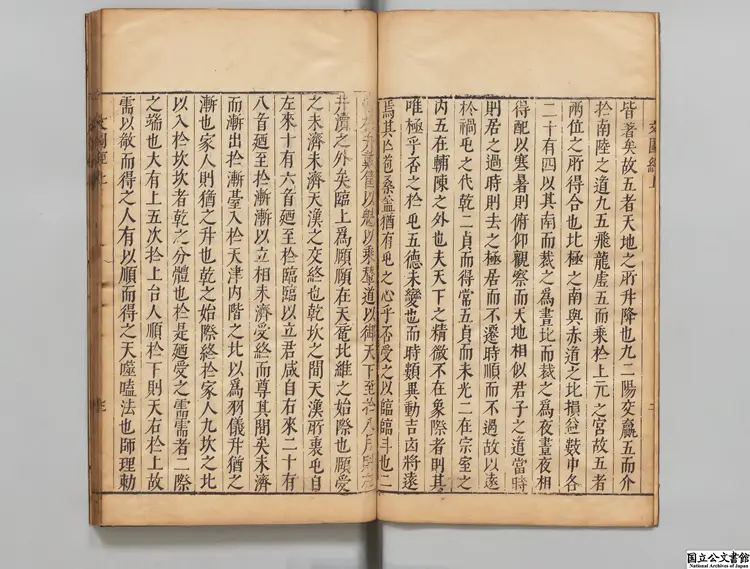 皆著矣故五者天地之所升降也九二陽交嬴五而介
於南陸之道九五飛龍虛五而乘於上元之宮故五者
兩位之所得合也比極之南與赤道之比損益數中各
二十有四以其南而裁之為晝比而裁之為夜晝夜相
得配以寒暑則俯仰觀察而天地相似君子之道當時
則居之過時則去之極居而不遷時順而不過故以遠
於禍屯之代乾二貞而得常五貞而未光二在宗室之
內五在輔陳之外也夫天下之精微不在象際者則其
唯極乎否之於屯五德未變也而時類異動吉凶將遠
焉其亡苞桑盖猶有屯之心乎否受之以臨臨斗也二
以乘羣道以御天下至於八月
井瀆之外矣臨上為頤頤在天黿比維之始際也頤受
之未濟未濟天漢之交終也乾坎之間天漢所裹屯自
左來十有六首廻至於臨臨以立君咸自右來二十有
八首廻至於漸漸以立相未濟受終而尊其間矣未濟
而漸出於漸臺入於天津內階之比以為羽儀升猶之
漸也家人則猶之升也乾之始際終於家人九坎之比
以入於坎坎者乾之分體也於是廻受之需需者二際
之端也大有上五次於上台人順於下則天右於上故
需以敬而得之人有以順而得之天噬嗑法也師理勅
文圖經上
国立公文書館
National Archives of Japan